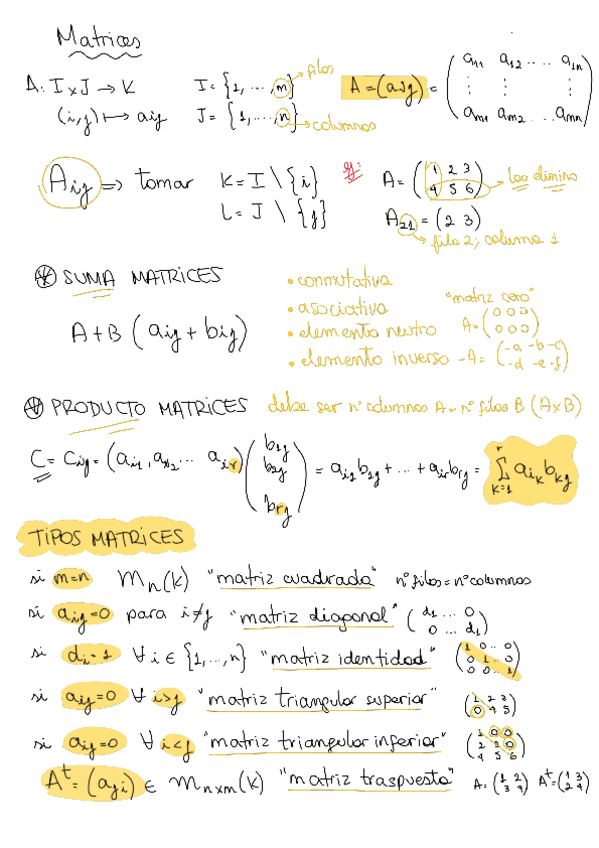 Matrices
A: I x J → K   I = {1, ..., m} → filas   A = (aij) = ( a11 a12 ... a1n
(i,j) ↦ aij   J = {1, ..., n} → columnas   am1 am2 ... amn )
Aij ⇒ tomar K = I \ {i}   ej:   A = ( 1 2 3   → los elimino
L = J \ {j}   4 5 6 )
A21 = (2 3)
→ fila 2, columna 1
SUMA MATRICES
A + B (aij + bij)
• conmutativa
• asociativa   "matriz cero"
• elemento neutro   A = ( 0 0 0
0 0 0 )
• elemento inverso   -A = ( -a -b -c
-d -e -f )
PRODUCTO MATRICES   debe ser nº columnas A = nº filas B (A x B)
C = cij = (ai1, ai2 ... air) ( b1j b2j brj ) = ai1 b1j + ... + air brj = Σ r k=1 aik bkj
TIPOS MATRICES
si m=n   Mn(K) "matriz cuadrada" nº filas = nº columnas
si aij=0 para i≠j "matriz diagonal" ( d1 ... 0
0 ... d1 )
si di=1 ∀ i ∈ {1,...,n} "matriz identidad" ( 1 0 .. 0
0 1 .. 0
0 0 .. 1 )
si aij=0 ∀ i>j "matriz triangular superior" ( 1 2 3
0 4 5 )
si aij=0 ∀ i<j "matriz triangular inferior" ( 1 0 0
2 3 0
4 5 6 )
At = (aji) ∈ Mnxm(K) "matriz traspuesta" A = ( 1 2   At = ( 1 3
3 4 )   2 4 )